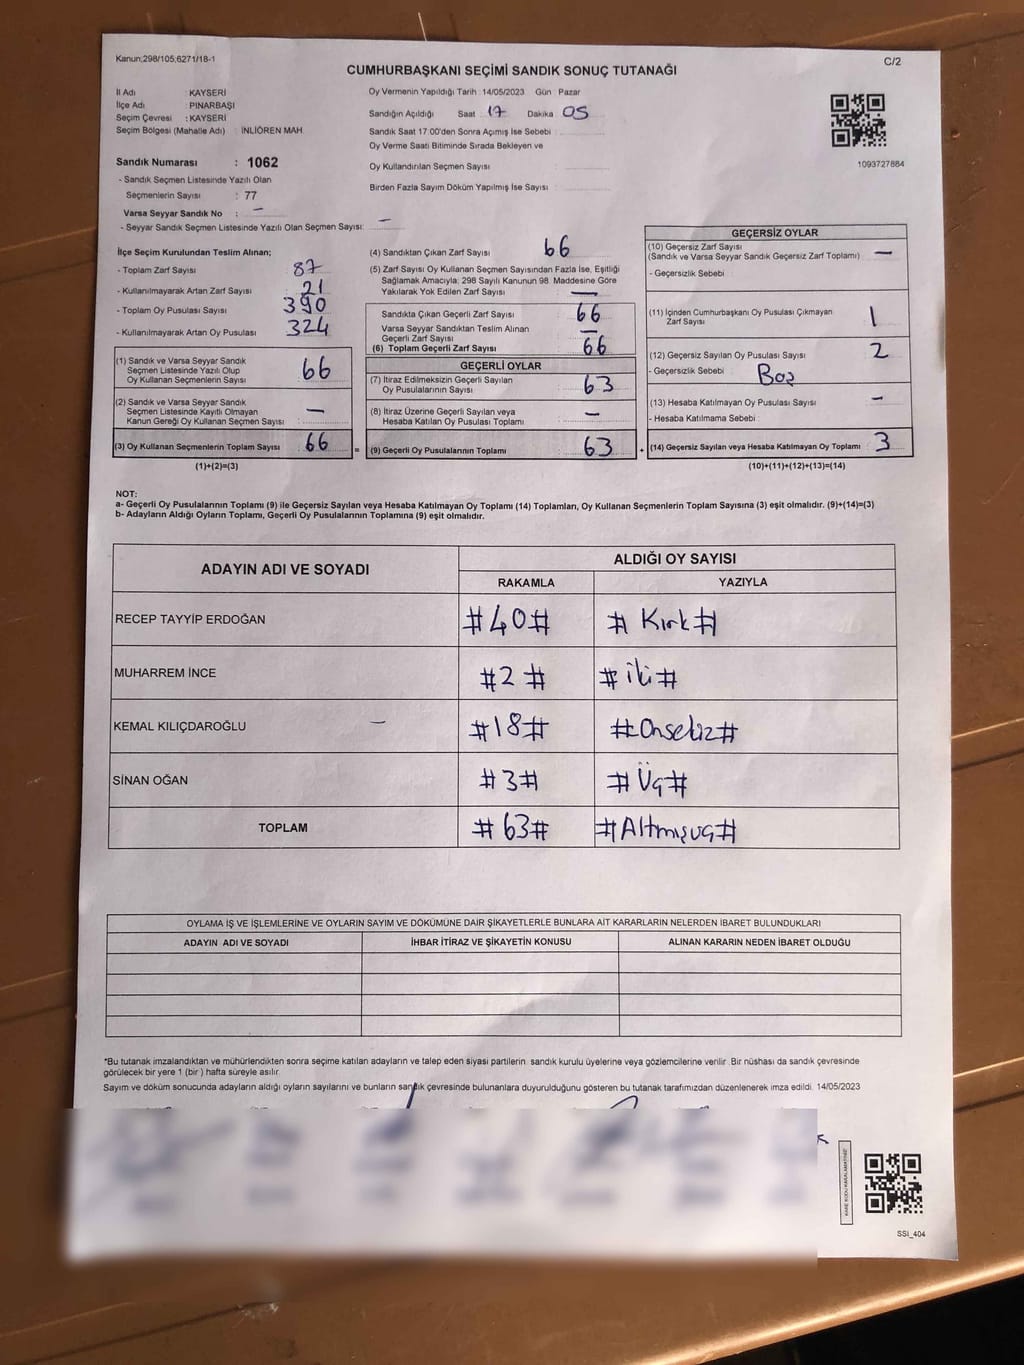 Kanun;298/105,6271/18-1
C/2
CUMHURBAŞKANI SEÇİMİ SANDIK SONUÇ TUTANAĞI
İl Adı : KAYSERİ
İlçe Adı : PINARBAŞI
Seçim Çevresi : KAYSERİ
Seçim Bölgesi (Mahalle Adı) : İNLİÖREN MAH.
Sandık Numarası : 1062
- Sandık Seçmen Listesinde Yazılı Olan
Seçmenlerin Sayısı : 77
Varsa Seyyar Sandık No : —
- Seyyar Sandık Seçmen Listesinde Yazılı Olan Seçmen Sayısı: —
Oy Vermenin Yapıldığı Tarih : 14/05/2023 Gün : Pazar
Sandığın Açıldığı Saat : 17 Dakika 05
Sandık Saat 17:00'den Sonra Açmış İse Sebebi :
Oy Verme Saati Bitiminde Sırada Bekleyen ve
Oy Kullandırılan Seçmen Sayısı :
Birden Fazla Sayım Döküm Yapılmış İse Sayısı :
1093727884
İlçe Seçim Kurulundan Teslim Alınan;
- Toplam Zarf Sayısı 87
- Kullanılmayarak Artan Zarf Sayısı 21
- Toplam Oy Pusulası Sayısı 390
- Kullanılmayarak Artan Oy Pusulası 324
(1) Sandık ve Varsa Seyyar Sandık
Seçmen Listesinde Yazılı Olup
Oy Kullanan Seçmenlerin Sayısı 66
(2) Sandık ve Varsa Seyyar Sandık
Seçmen Listesinde Kayıtlı Olmayan
Kanun Gereği Oy Kullanan Seçmen Sayısı : —
(3) Oy Kullanan Seçmenlerin Toplam Sayısı : 66
(1)+(2)=(3)
=
(4) Sandıktan Çıkan Zarf Sayısı 66
(5) Zarf Sayısı Oy Kullanan Seçmen Sayısından Fazla İse, Eşitliği
Sağlamak Amacıyla; 298 Sayılı Kanunun 98. Maddesine Göre
Yakılarak Yok Edilen Zarf Sayısı —
Sandıkta Çıkan Geçerli Zarf Sayısı 66
Varsa Seyyar Sandıktan Teslim Alınan
Geçerli Zarf Sayısı —
(6) Toplam Geçerli Zarf Sayısı 66
GEÇERLİ OYLAR
(7) İtiraz Edilmeksizin Geçerli Sayılan
Oy Pusulalarının Sayısı : 63
(8) İtiraz Üzerine Geçerli Sayılan veya
Hesaba Katılan Oy Pusulası Toplamı : —
(9) Geçerli Oy Pusulalarının Toplamı : 63
+
GEÇERSİZ OYLAR
(10) Geçersiz Zarf Sayısı
(Sandık ve Varsa Seyyar Sandık Geçersiz Zarf Toplamı) —
- Geçersizlik Sebebi :
(11) İçinden Cumhurbaşkanı Oy Pusulası Çıkmayan
Zarf Sayısı 1
(12) Geçersiz Sayılan Oy Pusulası Sayısı 2
- Geçersizlik Sebebi : Boş
(13) Hesaba Katılmayan Oy Pusulası Sayısı —
- Hesaba Katılmama Sebebi :
(14) Geçersiz Sayılan veya Hesaba Katılmayan Oy Toplamı 3
(10)+(11)+(12)+(13)=(14)
NOT:
a- Geçerli Oy Pusulalarının Toplamı (9) ile Geçersiz Sayılan veya Hesaba Katılmayan Oy Toplamı (14) Toplamları, Oy Kullanan Seçmenlerin Toplam Sayısına (3) eşit olmalıdır. (9)+(14)=(3)
b- Adayların Aldığı Oyların Toplamı, Geçerli Oy Pusulalarının Toplamına (9) eşit olmalıdır.
ADAYIN ADI VE SOYADI
ALDIĞI OY SAYISI
RAKAMLA YAZIYLA
RECEP TAYYİP ERDOĞAN #40# # Kırk#
MUHARREM İNCE #2# # iki#
KEMAL KILIÇDAROĞLU — #18# #Onsekiz#
SİNAN OĞAN #3# #Üç#
TOPLAM #63# #Altmışüç#
OYLAMA İŞ VE İŞLEMLERİNE VE OYLARIN SAYIM VE DÖKÜMÜNE DAİR ŞİKAYETLERLE BUNLARA AİT KARARLARIN NELERDEN İBARET BULUNDUKLARI
ADAYIN ADI VE SOYADI İHBAR İTİRAZ VE ŞİKAYETİN KONUSU ALINAN KARARIN NEDEN İBARET OLDUĞU
*Bu tutanak imzalandıktan ve mühürlendikten sonra seçime katılan adayların ve talep eden siyasi partilerin, sandık kurulu üyelerine veya gözlemcilerine verilir. Bir nüshası da sandık çevresinde
görülecek bir yere 1 (bir) hafta süreyle asılır.
Sayım ve döküm sonucunda adayların aldığı oyların sayılarını ve bunların sandık çevresinde bulunanlara duyurulduğunu gösteren bu tutanak tarafımızdan düzenlenerek imza edildi. 14/05/2023
KARE KODU KARALAMAYINIZ!
SSI_404